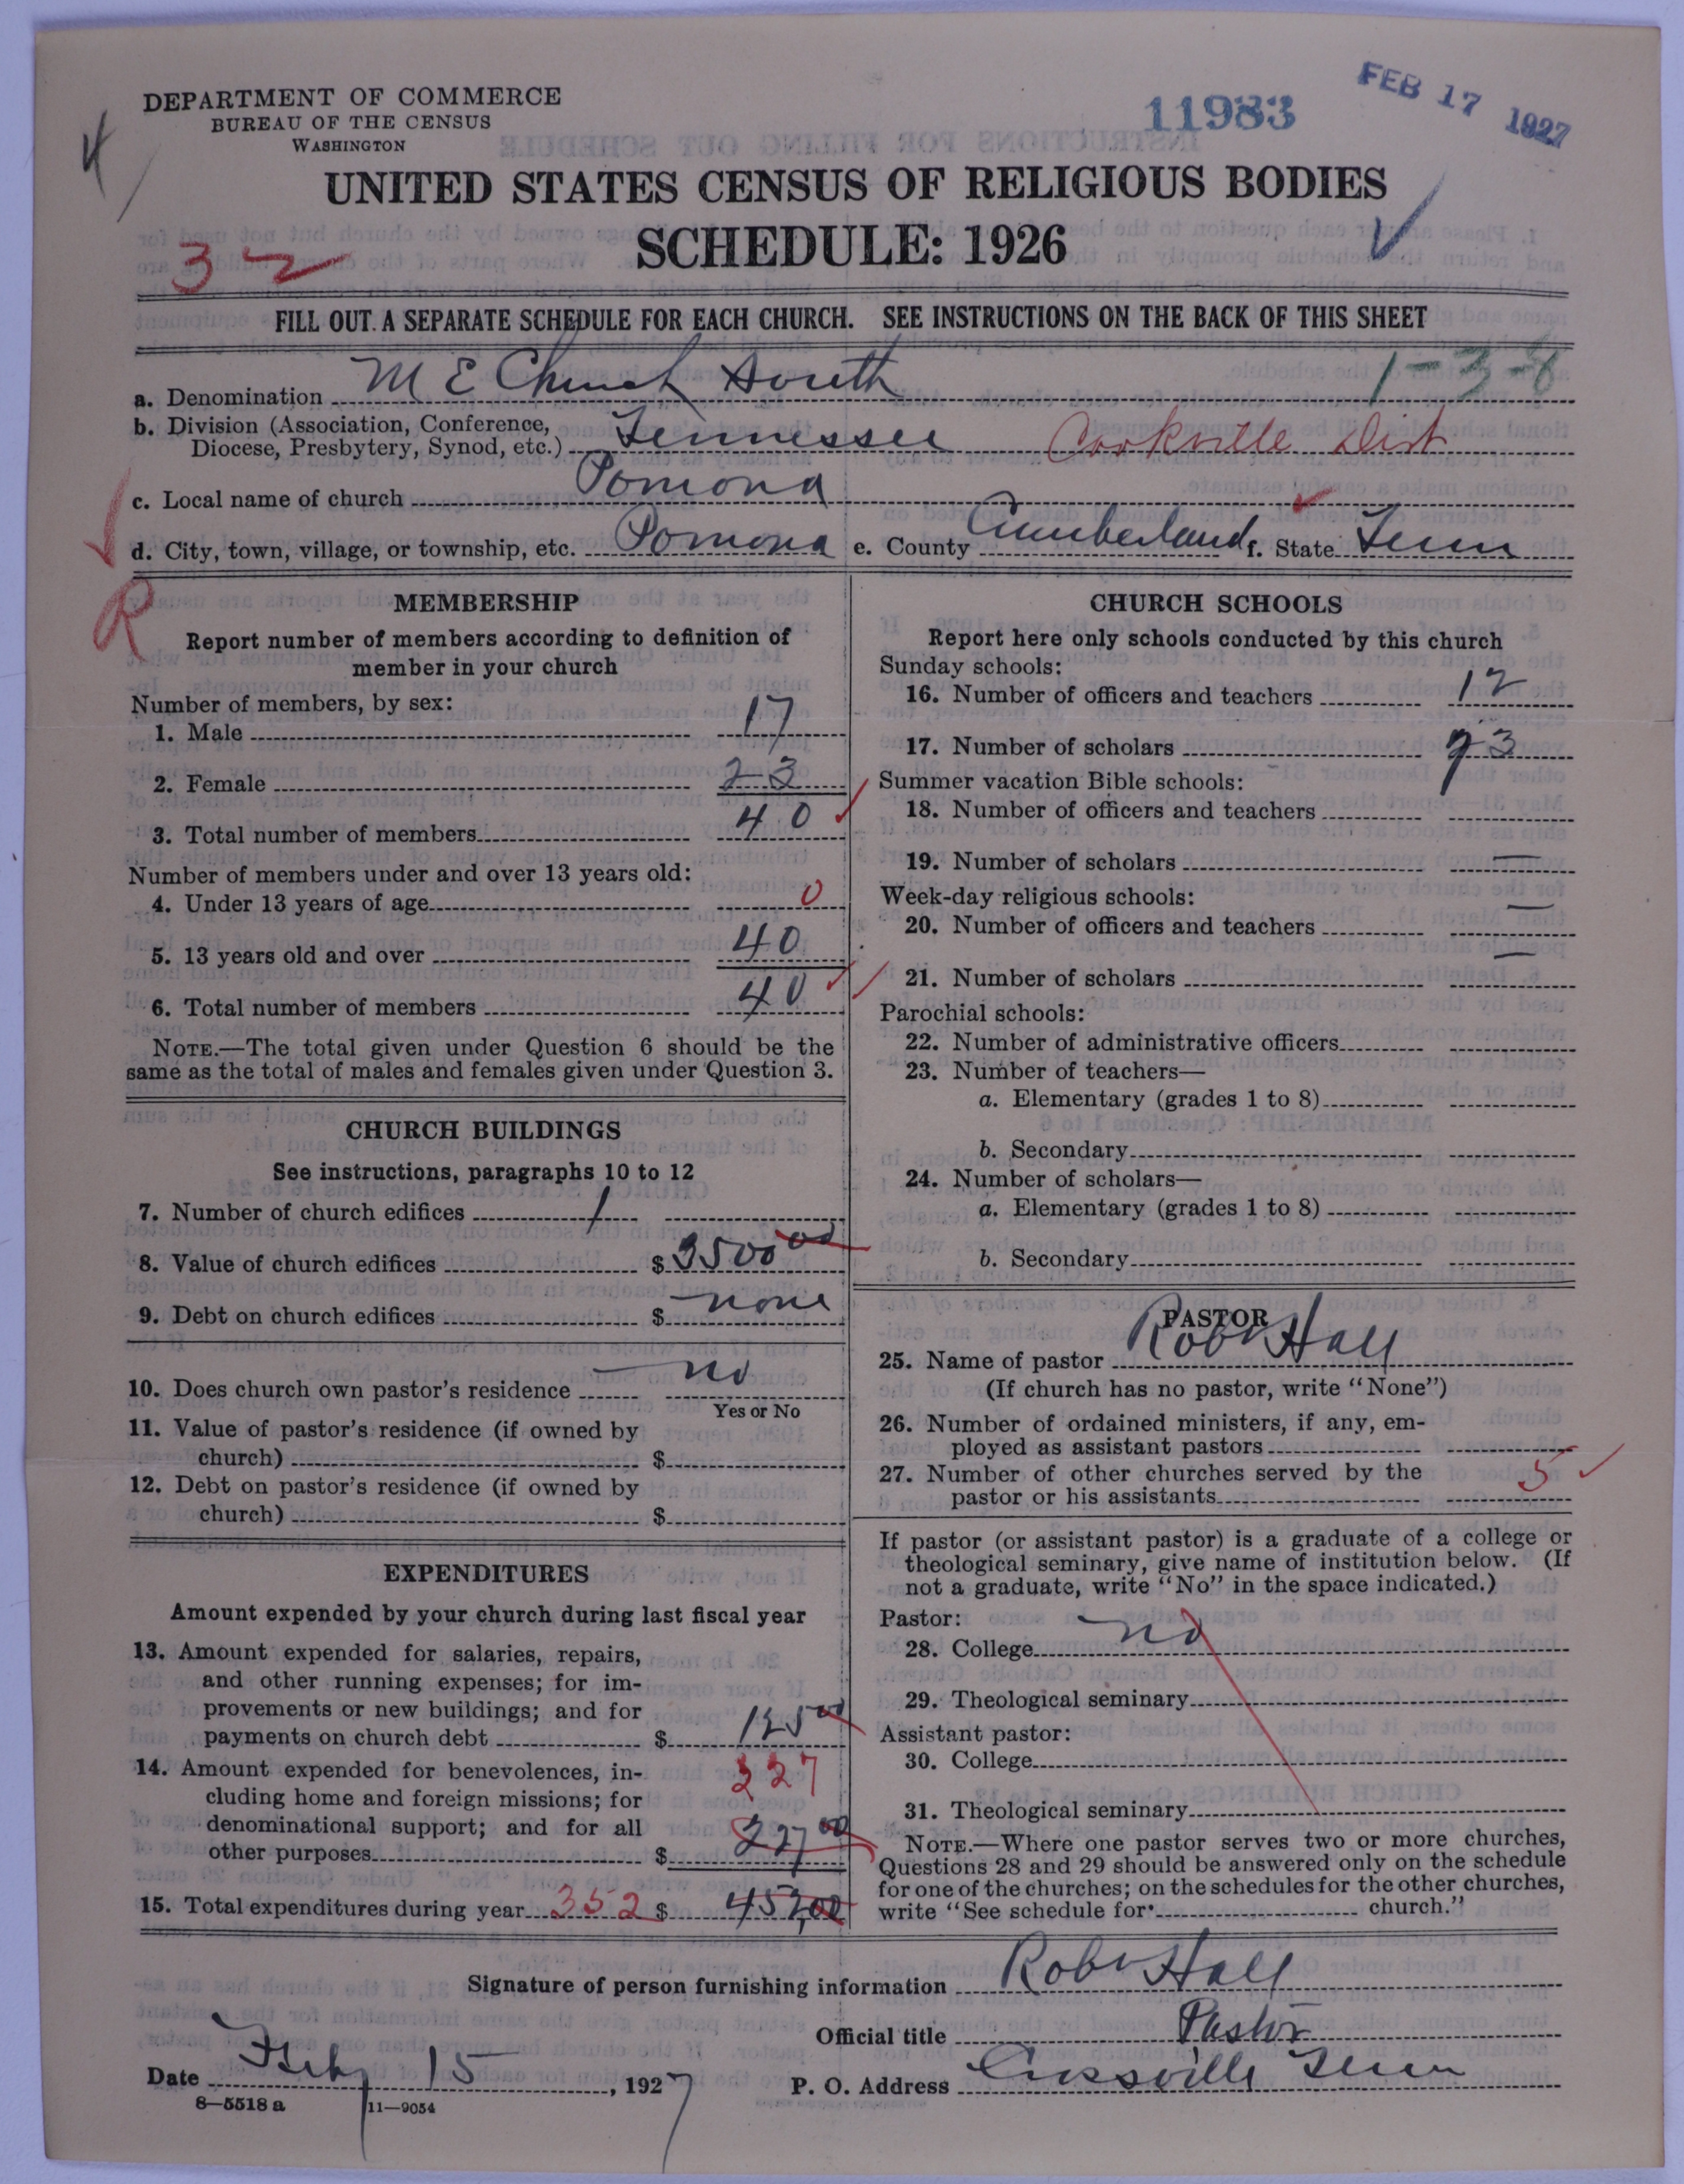 DEPARTMENT OF COMMERCE
BUREAU OF THE CENSUS
WASHINGTON
11983
FEB 17 1927
UNITED STATES CENSUS OF RELIGIOUS BODIES
SCHEDULE: 1926
3
FILL OUT A SEPARATE SCHEDULE FOR EACH CHURCH. SEE INSTRUCTIONS ON THE BACK OF THIS SHEET
1-3-8
a. Denomination M E Church South
b. Division (Association, Conference,
Diocese, Presbytery, Synod, etc.) Tennessee Cookville Dist
c. Local name of church Pomona
d. City, town, village, or township, etc. Pomona e. County Cumberland f. State Tenn
R
MEMBERSHIP
Report number of members according to definition of
member in your church
Number of members, by sex:
1. Male 17
2. Female 23
3. Total number of members 40
Number of members under and over 13 years old:
4. Under 13 years of age 0
5. 13 years old and over 40
6. Total number of members 40
NOTE.—The total given under Question 6 should be the
same as the total of males and females given under Question 3.
CHURCH BUILDINGS
See instructions, paragraphs 10 to 12
7. Number of church edifices 1
8. Value of church edifices $ 3500 00
9. Debt on church edifices $ none
10. Does church own pastor's residence no
Yes or No
11. Value of pastor's residence (if owned by
church) $
12. Debt on pastor's residence (if owned by
church) $
EXPENDITURES
Amount expended by your church during last fiscal year
13. Amount expended for salaries, repairs,
and other running expenses; for im-
provements or new buildings; and for
payments on church debt $ 125 00
14. Amount expended for benevolences, in-
cluding home and foreign missions; for
denominational support; and for all
other purposes $ 227 00
227
15. Total expenditures during year 352 $ 452 00
CHURCH SCHOOLS
Report here only schools conducted by this church
Sunday schools:
16. Number of officers and teachers 12
17. Number of scholars 73
Summer vacation Bible schools:
18. Number of officers and teachers
19. Number of scholars —
Week-day religious schools:
20. Number of officers and teachers —
21. Number of scholars —
Parochial schools:
22. Number of administrative officers
23. Number of teachers—
a. Elementary (grades 1 to 8)
b. Secondary
24. Number of scholars—
a. Elementary (grades 1 to 8)
b. Secondary
PASTOR
25. Name of pastor Robt Hall
(If church has no pastor, write "None")
26. Number of ordained ministers, if any, em-
ployed as assistant pastors
27. Number of other churches served by the
pastor or his assistants 5
If pastor (or assistant pastor) is a graduate of a college or
theological seminary, give name of institution below. (If
not a graduate, write "No" in the space indicated.)
Pastor:
28. College no
29. Theological seminary
Assistant pastor:
30. College
31. Theological seminary
NOTE.—Where one pastor serves two or more churches,
Questions 28 and 29 should be answered only on the schedule
for one of the churches; on the schedules for the other churches,
write "See schedule for church."
Signature of person furnishing information Robt Hall
Official title Pastor
Date Feby 15, 1927 P. O. Address Crossville Tenn
8—5518 a 11—9054